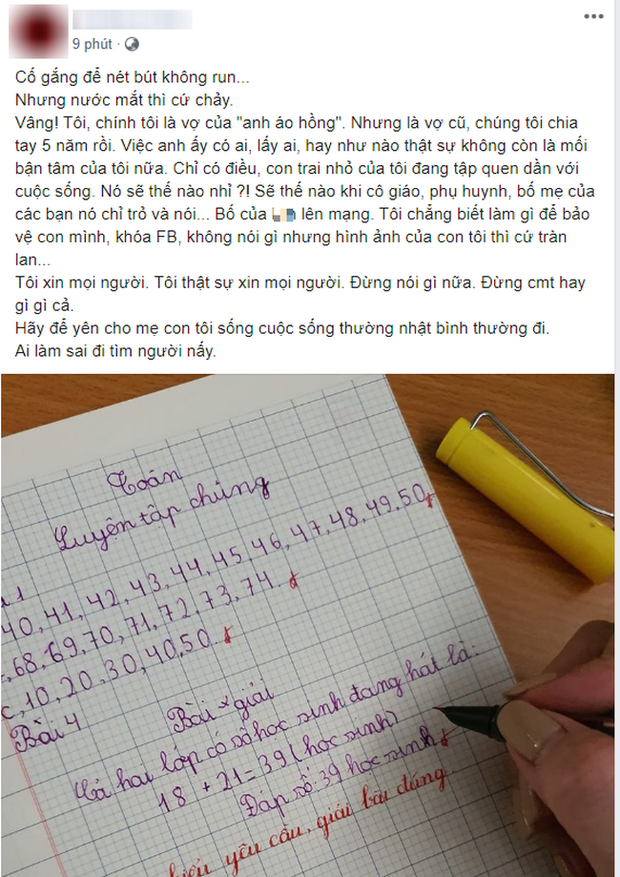 9 phút ·
Cố gắng để nét bút không run...
Nhưng nước mắt thì cứ chảy.
Vâng! Tôi, chính tôi là vợ của "anh áo hồng". Nhưng là vợ cũ, chúng tôi chia
tay 5 năm rồi. Việc anh ấy có ai, lấy ai, hay như nào thật sự không còn là mối
bận tâm của tôi nữa. Chỉ có điều, con trai nhỏ của tôi đang tập quen dần với
cuộc sống. Nó sẽ thế nào nhỉ ?! Sẽ thế nào khi cô giáo, phụ huynh, bố mẹ của
các bạn nó chỉ trỏ và nói... Bố của lên mạng. Tôi chẳng biết làm gì để bảo
vệ con mình, khóa FB, không nói gì nhưng hình ảnh của con tôi thì cứ tràn
lan...
Tôi xin mọi người. Tôi thật sự xin mọi người. Đừng nói gì nữa. Đừng cmt hay
gì gì cả.
Hãy để yên cho mẹ con tôi sống cuộc sống thường nhật bình thường đi.
Ai làm sai đi tìm người nấy.
Toán
Luyện tập chung
1
40, 41, 42, 43, 44, 45, 46, 47, 48, 49, 50
, 68, 69, 70, 71, 72, 73, 74.
c, 10, 20, 30, 40, 50.
Bài 4
Bài giải
Cả hai lớp có số học sinh đang hát là.
18 + 21 = 39 (học sinh)
Đáp số: 39 học sinh
hiểu yêu cầu, giải bài đúng